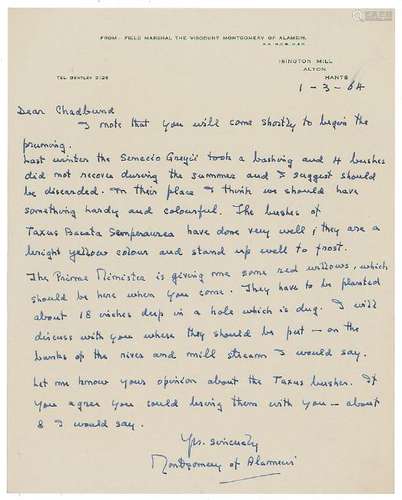 FROM- FIELD MARSHAL THE VISCOUNT MONTGOMERY OF ALAMEIN,
ISINGTON MILL
ALTON
TEL. BENTLEY 3126
HANTS
1-3-64
Dear Chadbund
I note that you will come shortly to begin the
pruning.
Last winter the Senecio Greyii took a bashing and 4 bushes
did not recover during the summer and I suggest should
be discarded. In their place I think we should have
something hardy and colourful. The bushes of
Taxus Bacata Semperaurea have done very well; they are a
bright yellow colour and stand up well to frost.
The Prime Minister is giving me some red willows, which
should be here when you come. They have to be planted
about 18 inches deep in a hole which is dug. I will
discuss with you where they should be put - on the
banks of the river and mill stream I would say.
Let me know your opinion about the Taxus bushes. If
you agree you could bring them with you - about
8 I would say.
Yrs. sincerely
Montgomery of Alamein